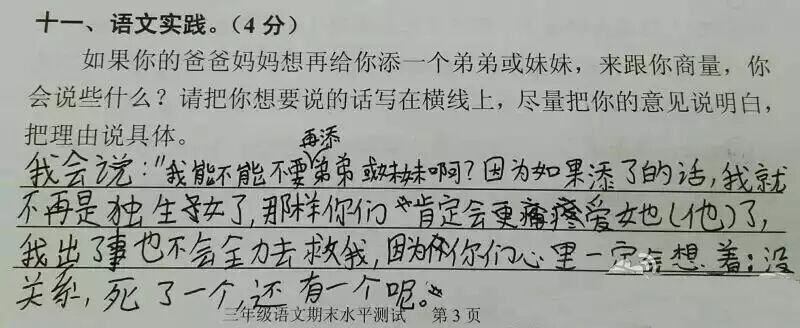 十一、语文实践。（4分）
如果你的爸爸妈妈想再给你添一个弟弟或妹妹，来跟你商量，你
会说些什么？请把你想要说的话写在横线上，尽量把你的意见说明白，
把理由说具体。
再添
我会说："我能不能不要弟弟或妹妹啊？因为如果添了的话，我就
不再是独生子女了，那样你们肯定会更疼爱她(他)了，
我出了事也不会全力去救我，因为你们心里一定会想着：没
关系，死了一个，还有一个呢。"
三年级语文期末水平测试 第3页